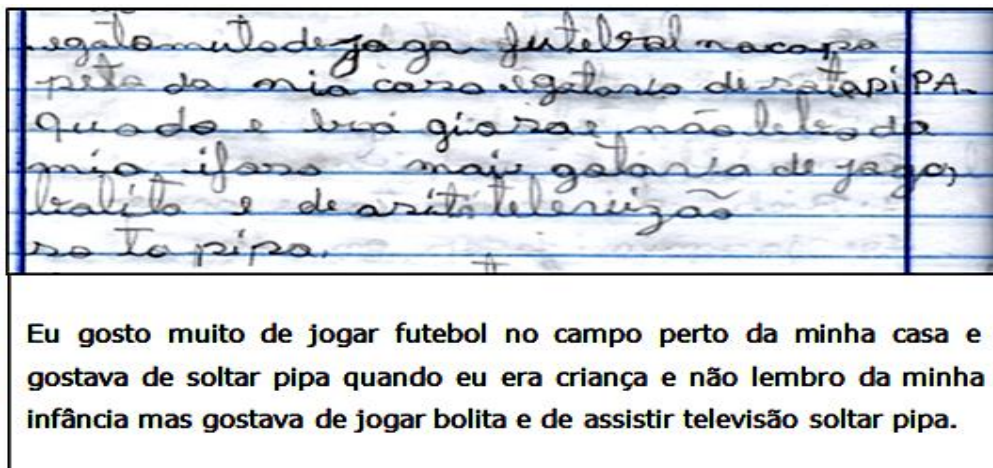 egotomutodejoga futebol nacapo
peto da mia casa egotavo de sotapiPA.
quado e era giasa e não lebro da
mia ifasa mais gotavia de jaga,
balita e de asiti televizão
so ta pipa.
Eu gosto muito de jogar futebol no campo perto da minha casa e
gostava de soltar pipa quando eu era criança e não lembro da minha
infância mas gostava de jogar bolita e de assistir televisão soltar pipa.